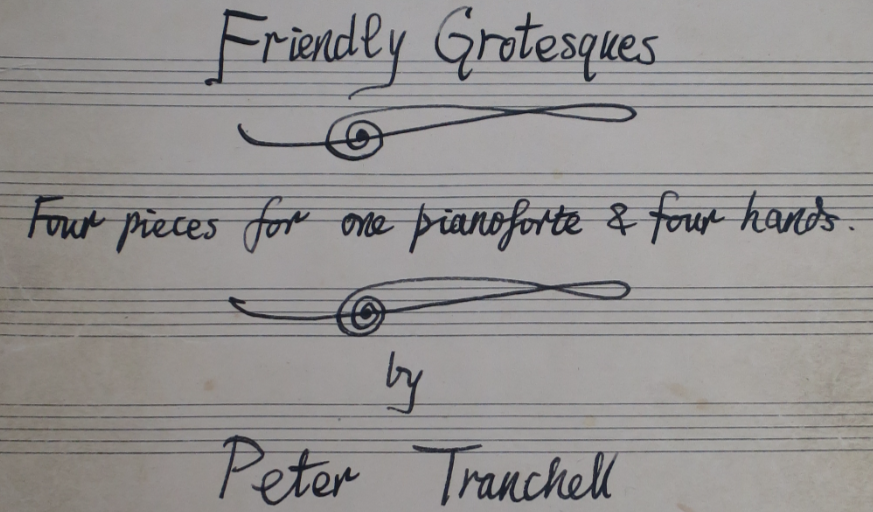 Friendly Grotesques
Four pieces for one pianoforte & four hands.
by
Peter Tranchell